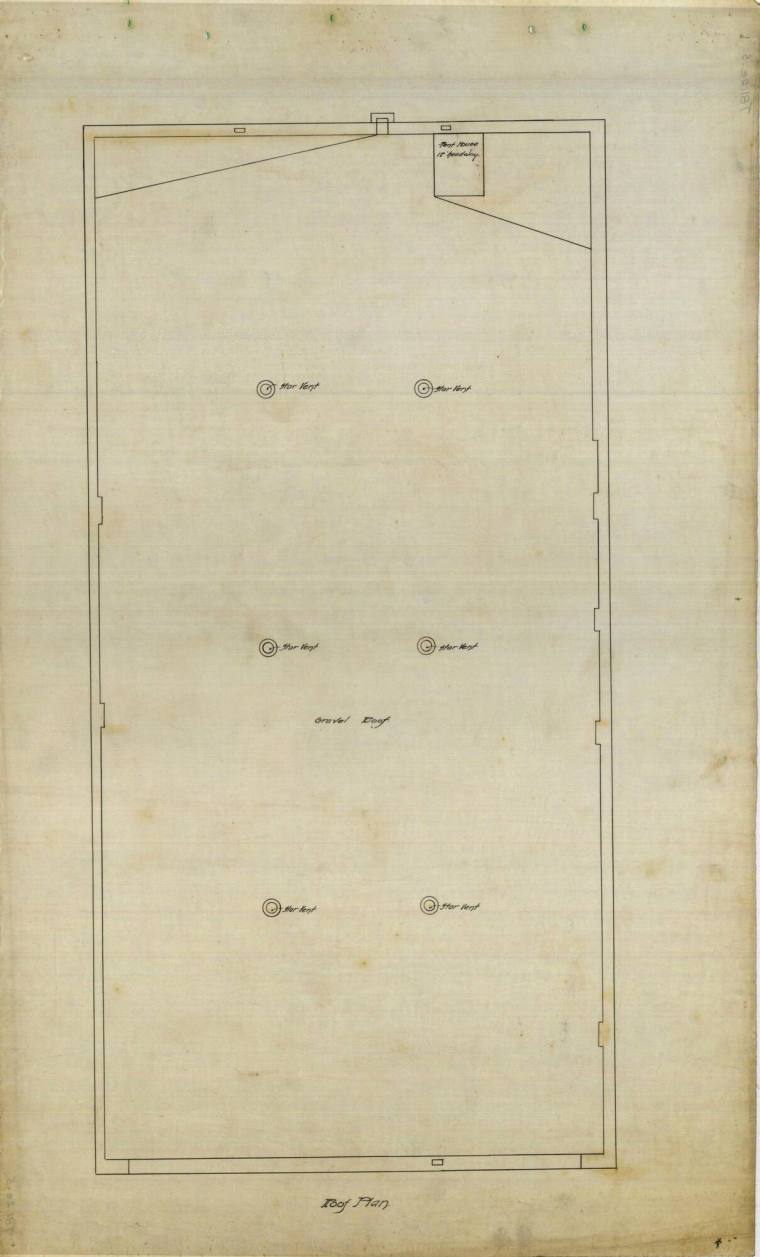 Pent House
12' headway.
Star Vent
Star Vent
Star Vent
Star Vent
Gravel Roof
Star Vent
Star Vent
Roof Plan
4